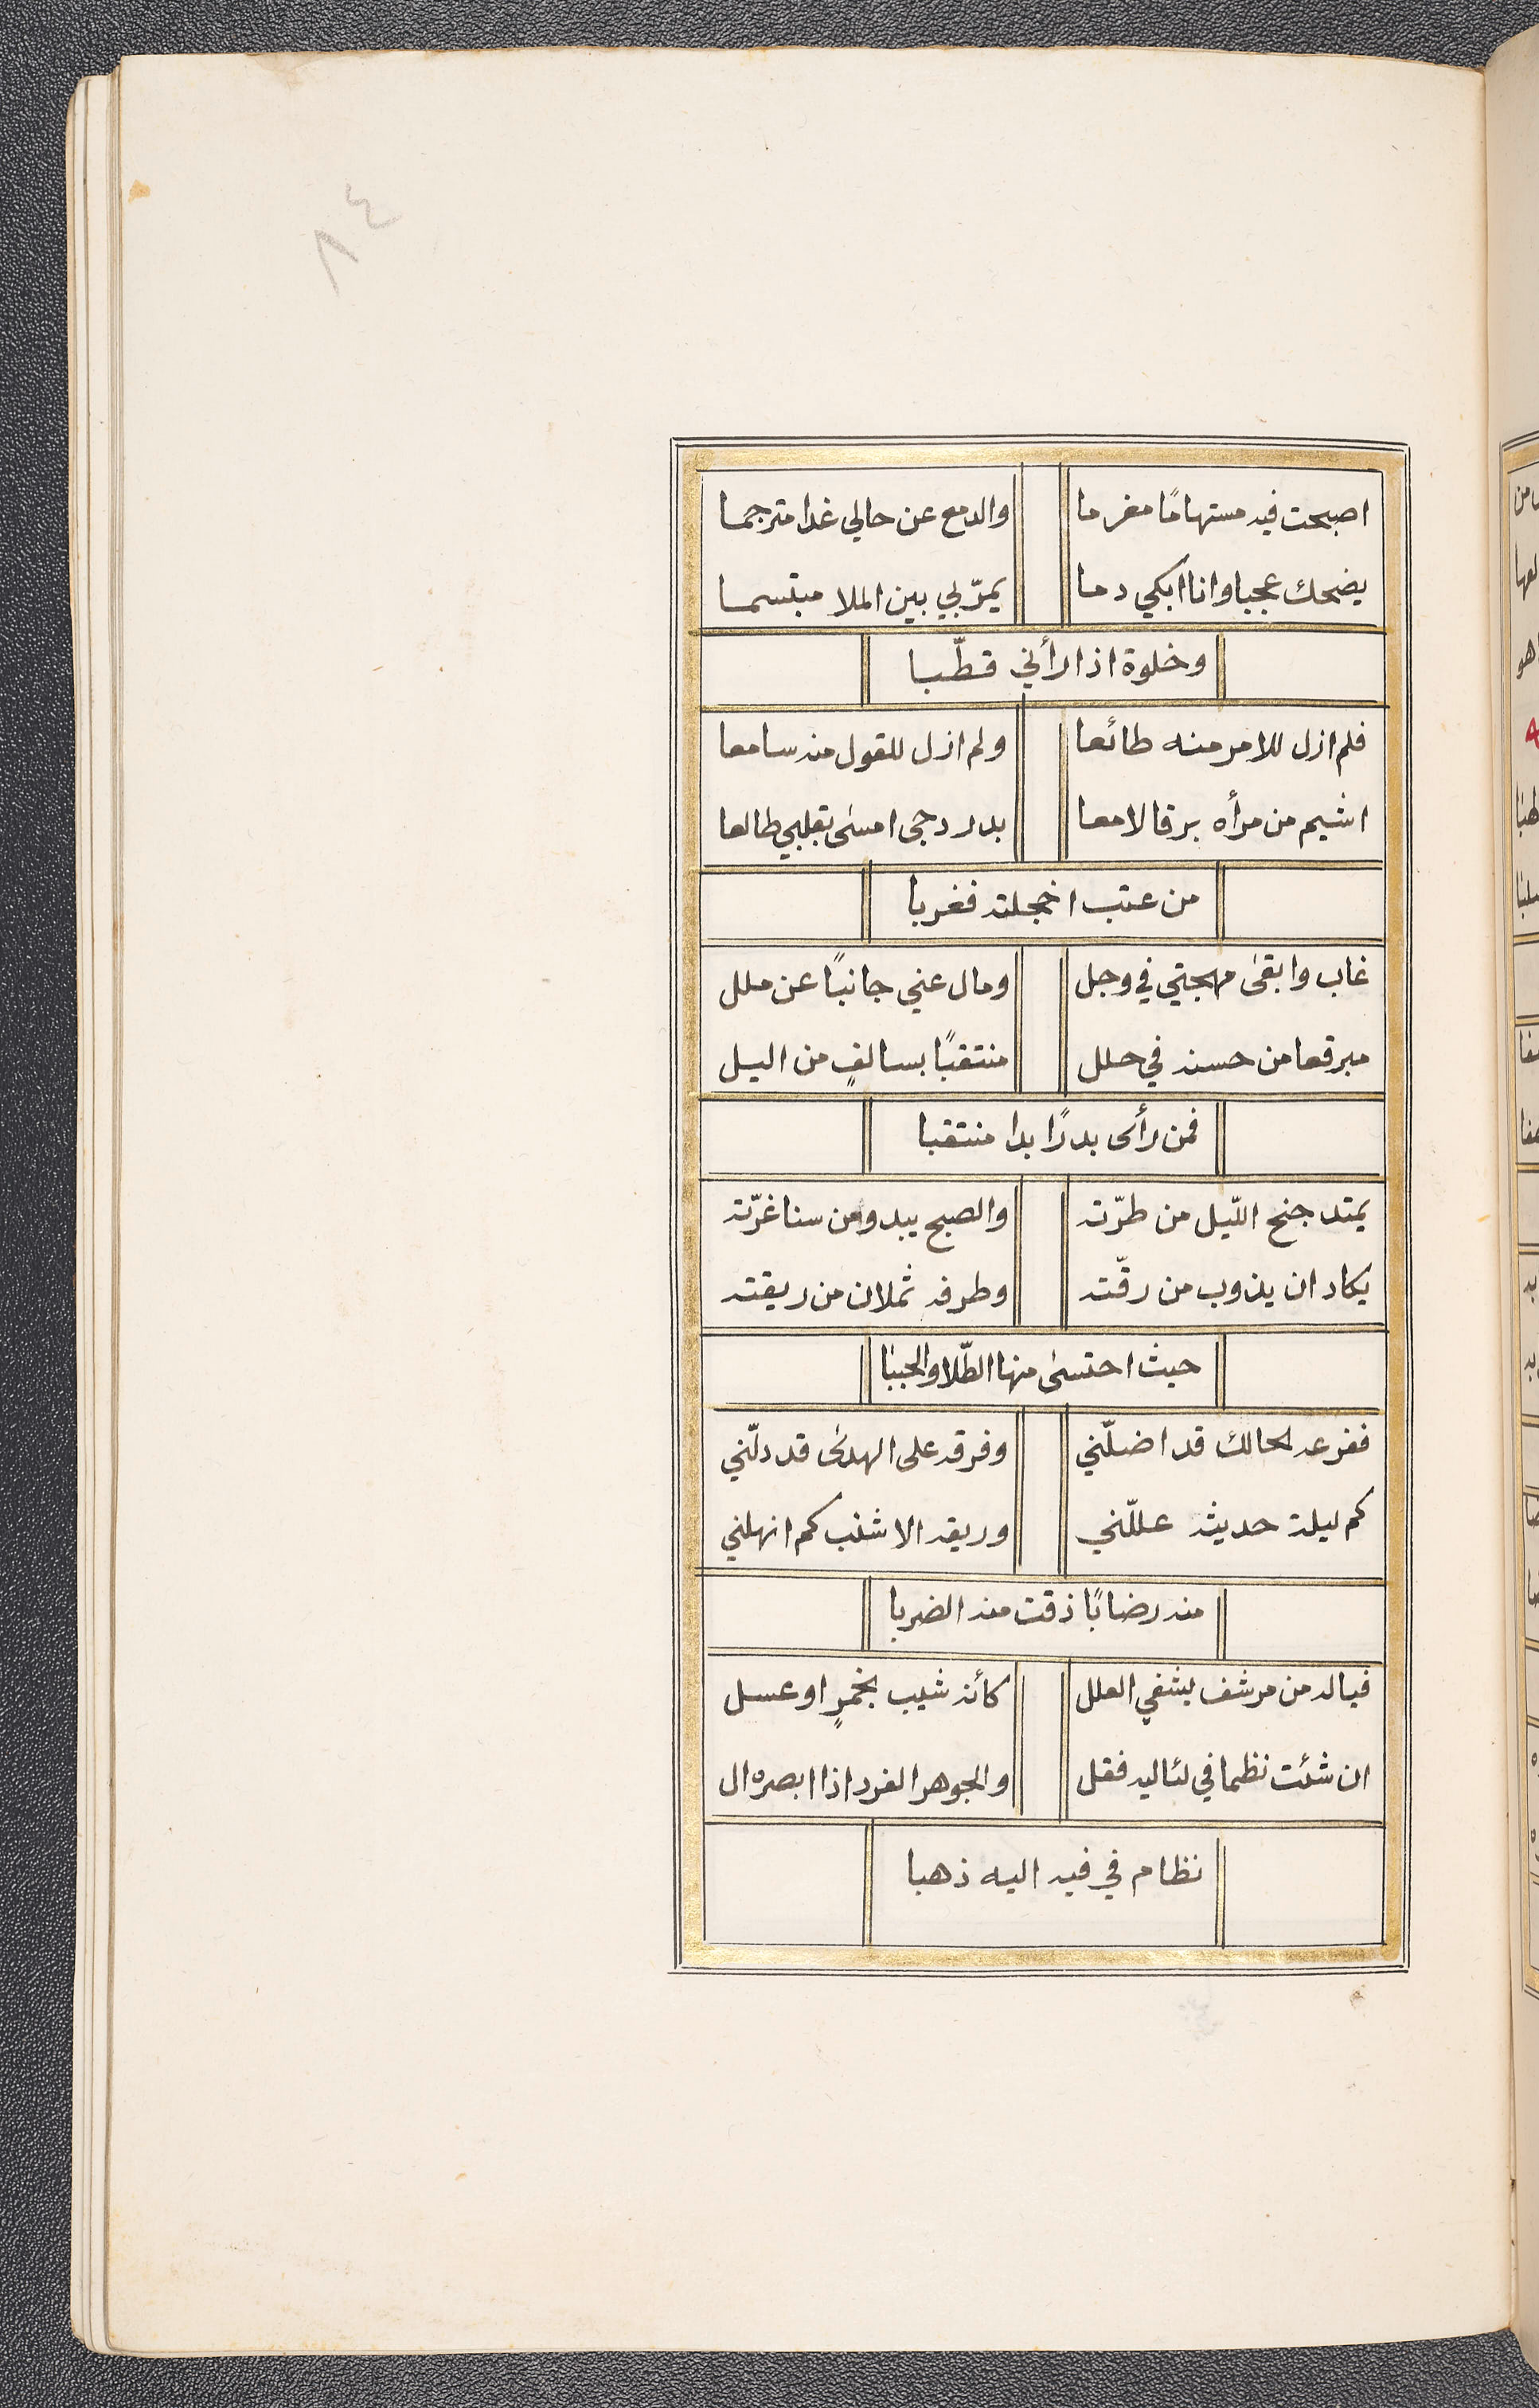 ٨٤
اصبحت فيه مستهامًا مغرما والدمع عن حالي غدا مترجما
يضحك عجبا وانا ابكي دما يمرّ بي بين الملا مبتسما
وخلوة اذا رأني قطّبا
فلم ازل للامر منه طائعا ولم ازل للقول منه سامعا
اشيم من مرأه برقا لامعا بدر دجى امسى بقلبي طالعا
من عتب اخجلته فغربا
غاب وابقى مهجتي في وجل ومال عني جانبًا عن ملل
مبرقعا من حسنه في حلل منتقبًا بسالفٍ من اليل
فمن رأى بدرًا بدا منتقبا
يمتد جنح اللّيل من طرّته والصبح يبدو من سنا غرّته
يكاد ان يذوب من رقّته وطرفه ثملان من ريقته
حيث احتسى منها الطّلا والحببا
ففرعه الحالك قد اضلّني وفرقه على الهدى قد دلّني
كم ليلة حديثه علّلني وريقه الاشنب كم انهلني
منه رضابًا ذقت منه الضربا
فياله من مرشف يشفي العلل كأنه شيب بخمرٍ او عسل
ان شئت نظما في لئاليه فقل والجوهر الفرد اذا ابصره ال
نظام في فيه اليه ذهبا